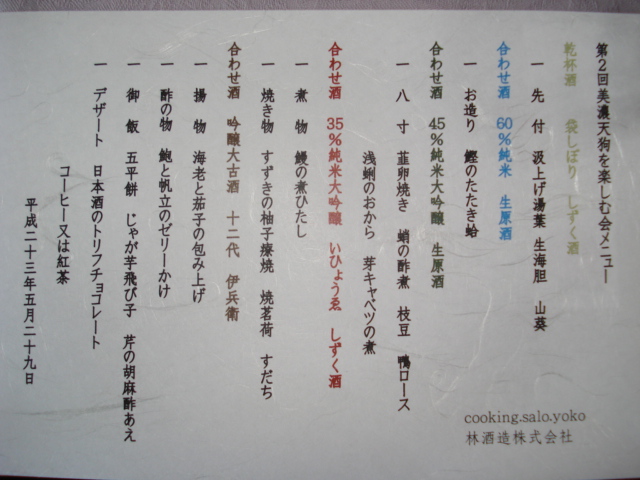 第2回美濃天狗を楽しむ会メニュー
乾杯酒 袋しぼり しずく酒
一 先 付 汲上げ湯葉 生海胆 山葵
合わせ酒 60%純米 生原酒
一 お造り 鰹のたたき蛤
合わせ酒 45%純米大吟醸 生原酒
一 八 寸 韮卵焼き 蛸の酢煮 枝豆 鴨ロース
浅蜊のおから 芽キャベツの煮
合わせ酒 35%純米大吟醸 いひょうゑ しずく酒
一 煮 物 鰻の煮ひたし
一 焼き物 すずきの柚子療焼 焼茗荷 すだち
合わせ酒 吟醸大古酒 十二代 伊兵衛
一 揚 物 海老と茄子の包み上げ
一 酢の物 鮑と帆立のゼリーかけ
一 御 飯 五平餅 じゃが芋飛び子 芹の胡麻酢あえ
一 デザート 日本酒のトリフチョコレート
コーヒー又は紅茶
平成二十三年五月二十九日
cooking.salo.yoko
林酒造株式会社